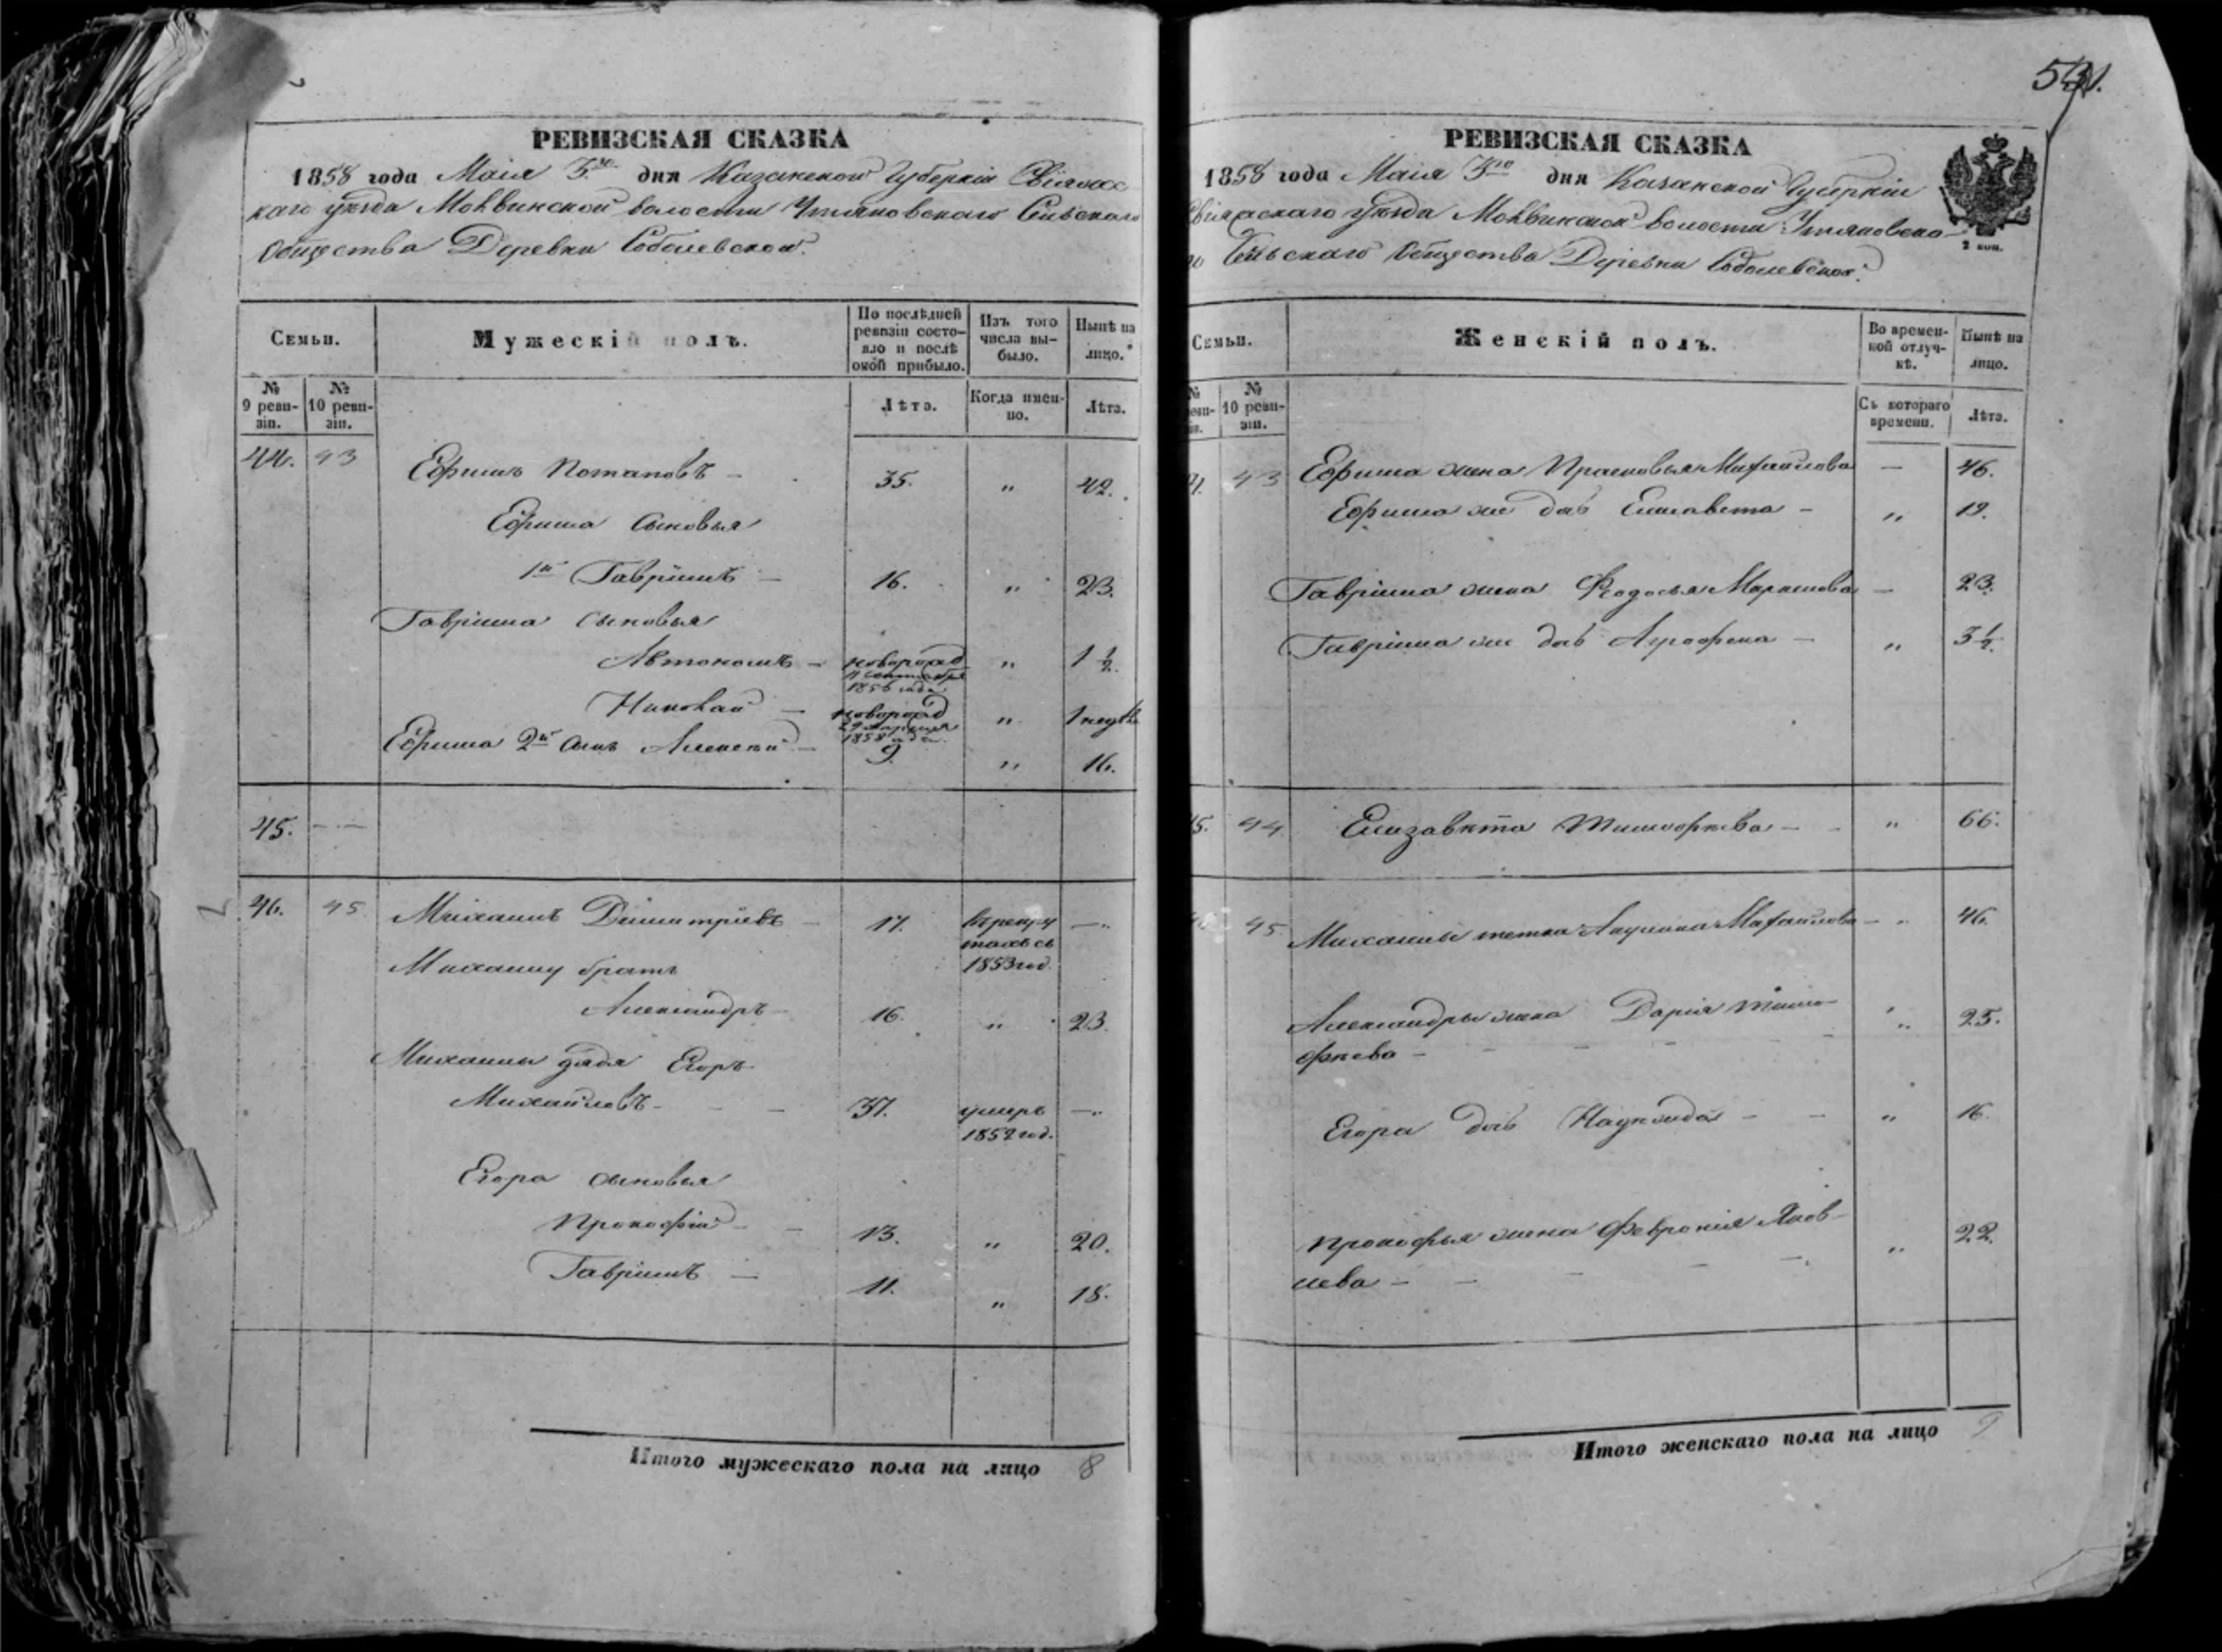 531.
РЕВИЗСКАЯ СКАЗКА
1858 года Маія 3го дня Казанской Губерніи Свіяжс-
каго уѣзда Моквинской волости Утяковскаго Сельскаго
Общества Деревни Соболевской.
Семьи.
Мужескій полъ.
По послѣдней ревизіи состо-
яло и послѣ оной прибыло.
Изъ того числа вы-
было.
Нынѣ на лицо.
№ 9 реви-
зіи.
№ 10 реви-
зіи.
Лѣта.
Когда имен-
но.
Лѣта.
44. 43 Ефимъ Потаповъ - 35. " 42.
Ефима сыновья
1й Гавріилъ - 16. " 23.
Гавріила сыновья
Автономъ - новорожд " 1 1/2.
1856 года
Николай - новорожд " 1 недѣл
1858 года
Ефима 2й сынъ Алексѣй - 9. " 16.
45. - -
46. 45 Михаилъ Димитріевъ - 17. въ рекру
тахъ съ
1853 год. - "
Михаилу братъ
Александръ - 16. " 23.
Михаилы дядя Егоръ
Михайловъ - - - 37. умеръ - "
1852 год.
Егора сыновья
Прокофій - - 13. " 20.
Гавріилъ - 11. " 18.
Итого мужескаго пола на лицо 8
РЕВИЗСКАЯ СКАЗКА
1858 года Маія 3го дня Казанской Губерніи
Свіяжскаго уѣзда Моквинской волости Утяковска-
го Сельскаго Общества Деревни Соболевской.
2 коп.
Семьи.
Женскій полъ.
Во времен-
ной отлуч-
кѣ.
Нынѣ на лицо.
№ 10 реви-
зіи.
Съ котораго времени.
Лѣта.
43 Ефима жена Прасковья Михайлова - 46.
Ефима же дочь Елисавета - " 19.
Гавріила жена Федосья Маркелова - 23.
Гавріила же дочь Аграфена - " 3 1/2.
5. 44. Елизавѣта Тимофѣева - - " 66.
45 Михаилы тетка Акулина Михайлова - " 46.
Александры жена Дарія Тимо-
фѣева - - - - " 25.
Егора дочь Надежда - - " 16.
Прокофья жена Февронія Яков-
лева - - - - - " 22.
Итого женскаго пола на лицо 9